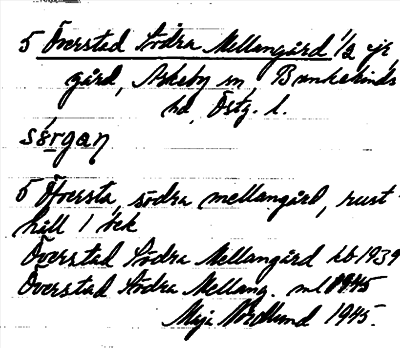 5 Överstad Södra Mellangård 1/2 ejr
gård, Askeby sn, Bankekinds
hd, Östg. l.
sörgan
5 Öfversta, södra mellangård, rust-
håll 1 bek
Överstad Södra Mellangård Lb 1939
Överstad Södra Mellang. ml 1945
Maja Nordlund 1945.